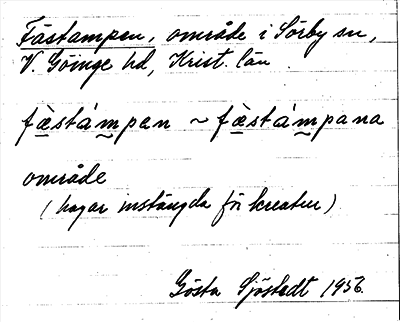 Fästampen, område i Sörby sn,
V. Göinge hd, Krist. län
fèstámpen ~ fèstámpana
område
(hagar instängda för kreatur)
Gösta Sjöstedt 1956.